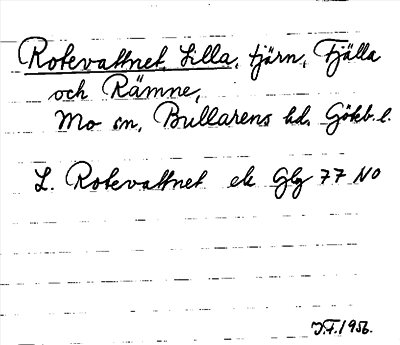 Rotevattnet, Lilla, tjärn, Fjälla
och Rämne,
Mo sn, Bullarens hd. Göteb. l.
L. Rotevattnet ek Glg 77 NO
J.F. 1956.